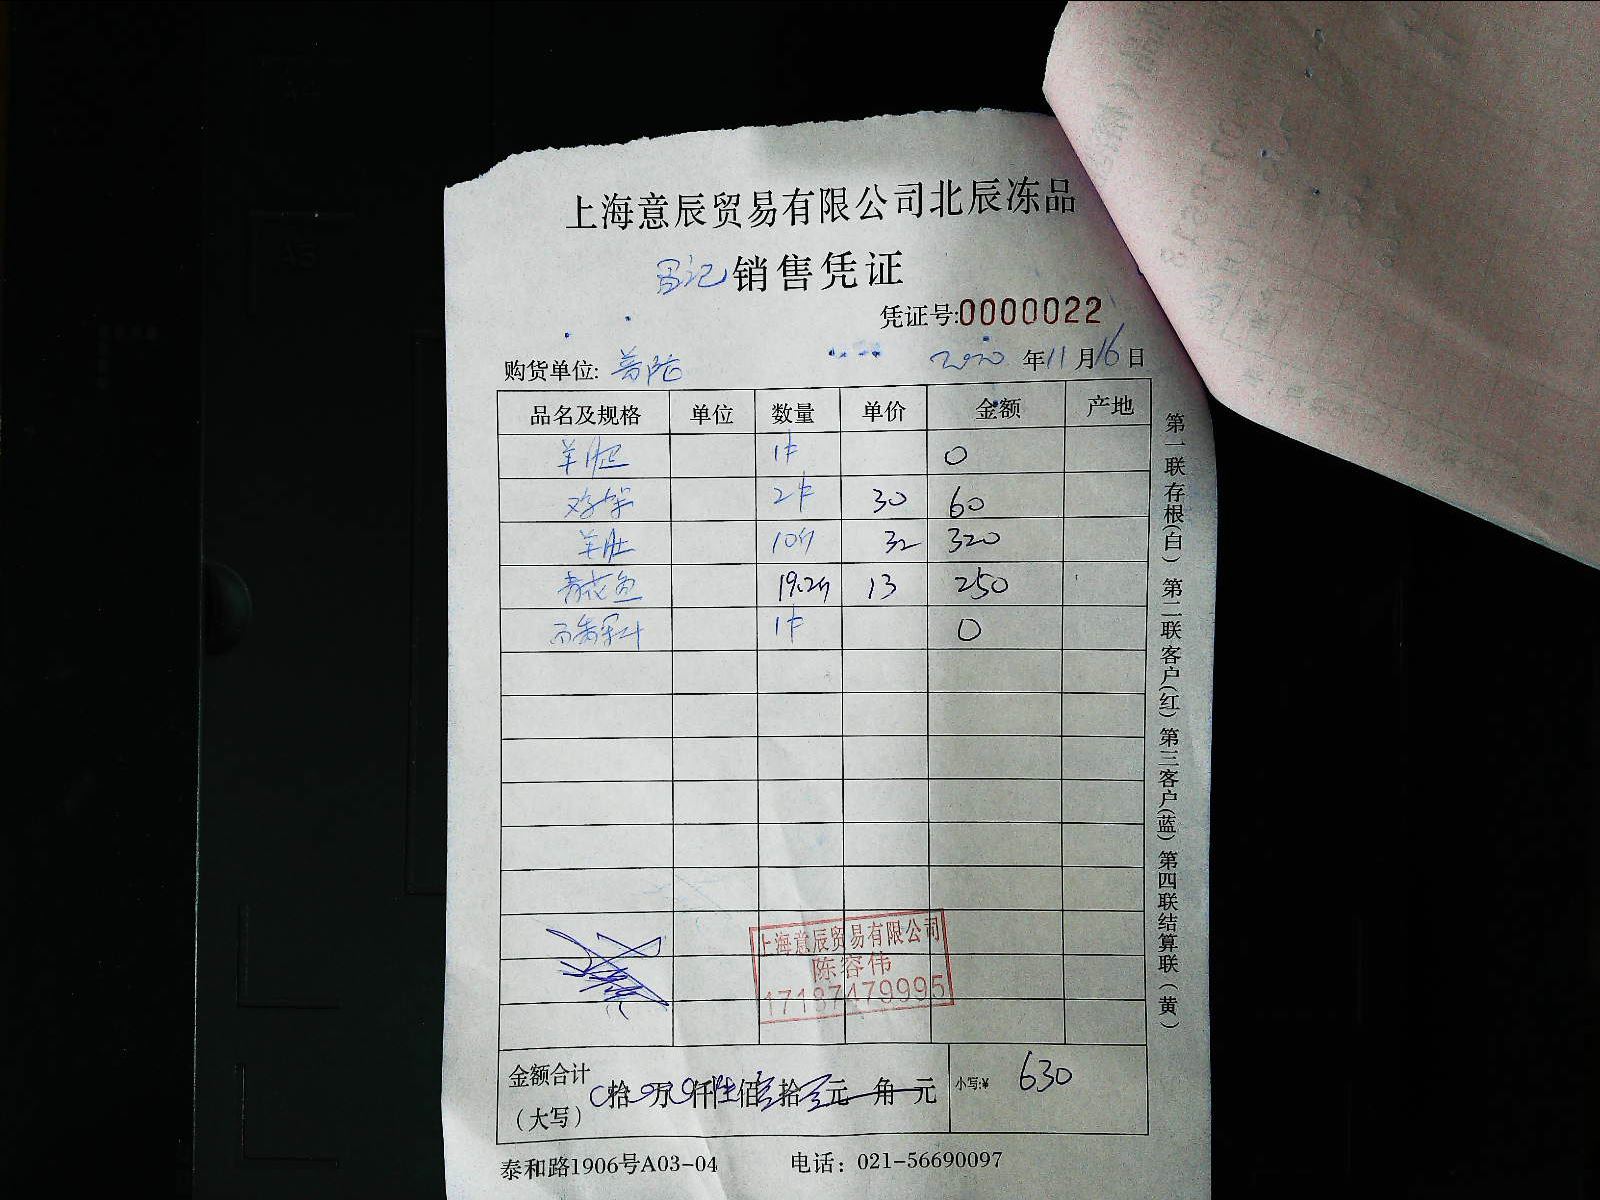 上海意辰贸易有限公司北辰冻品
销售凭证
凭证号:0000022
购货单位: 普陀 2020 年 11 月 16 日
品名及规格 单位 数量 单价 金额 产地
1件 0
鸡架 2件 30 60
羊肚 10斤 32 320
青花鱼 19.2斤 13 250
1件 0
上海意辰贸易有限公司
陈容伟
17187479995
金额合计
(大写) 拾 万 仟 陆 佰 叁 拾 元 角 元 小写:¥ 630
泰和路1906号A03-04 电话：021-56690097
第一联存根(白) 第二联客户(红) 第三客户(蓝) 第四联结算联(黄)